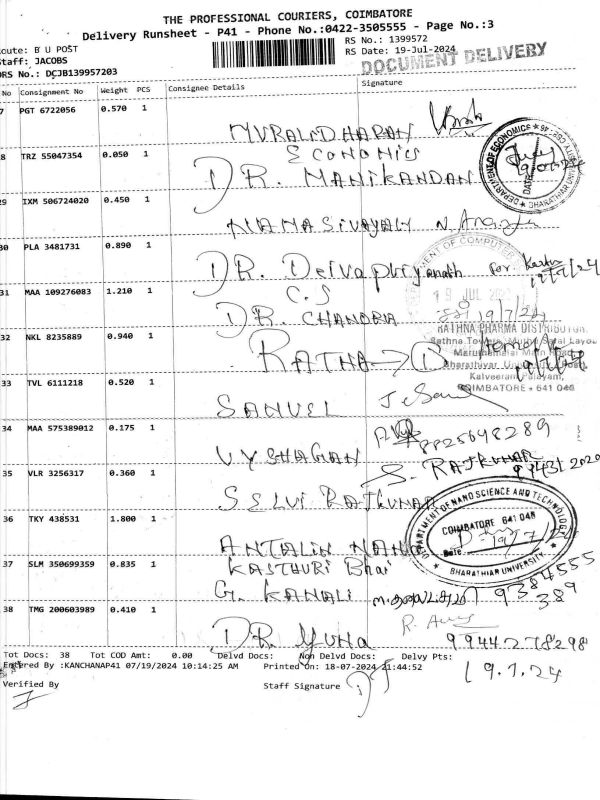 THE PROFESSIONAL COURIERS, COIMBATORE
Delivery Runsheet - P41 - Phone No.:0422-3505555 - Page No.:3
Route: B U POST
RS No.: 1399572
Staff: JACOBS
RS Date: 19-Jul-2024
DRS No.: DCJB139957203
DOCUMENT DELIVERY
No Consignment No Weight PCS Consignee Details Signature
7 PGT 6722056 0.570 1
MURALIDHARAN
8 TRZ 55047354 0.050 1
ECONOMICS
DR. MANIKANDAN
DEPARTMENT OF ECONOMICS
DATE
BHARATHIAR
29 IXM 506724020 0.450 1
NAMASIVAYAM
30 PLA 3481731 0.890 1
DR. Deivapriyanath for
19/7/24
31 MAA 109276083 1.210 1
C.S
DR. CHANDRA
19 JUL
19/7/24
32 NKL 8235889 0.940 1
RATHNA PHARMA DISTRIBUTOR
Rathna Towers,
Maruthamalai Main Road
Bharathiyar
Kalveerampalayam,
COIMBATORE - 641 046
33 TVL 6111218 0.520 1
SAMUEL
34 MAA 575389012 0.175 1
VYSHAGAN
8825698289
35 VLR 3256317 0.360 1
SELVI RAJKUMAR
S. RAJKUMAR
36 TKY 438531 1.800 1
ANTALIN NANO
DEPARTMENT OF NANO SCIENCE AND TECHNOLOGY
COIMBATORE 641 046
Date
BHARATHIAR UNIVERSITY
37 SLM 350699359 0.835 1
KASTHURI Bhai
G. KANALI
9384555
389
38 TMG 200603989 0.410 1
DR YUMA
9944278298
Tot Docs: 38 Tot COD Amt: 0.00 Delvd Docs: Non Delvd Docs: Delvy Pts:
Entered By :KANCHANAP41 07/19/2024 10:14:25 AM Printed On: 18-07-2024 21:44:52
19.7.24
Verified By
Staff Signature